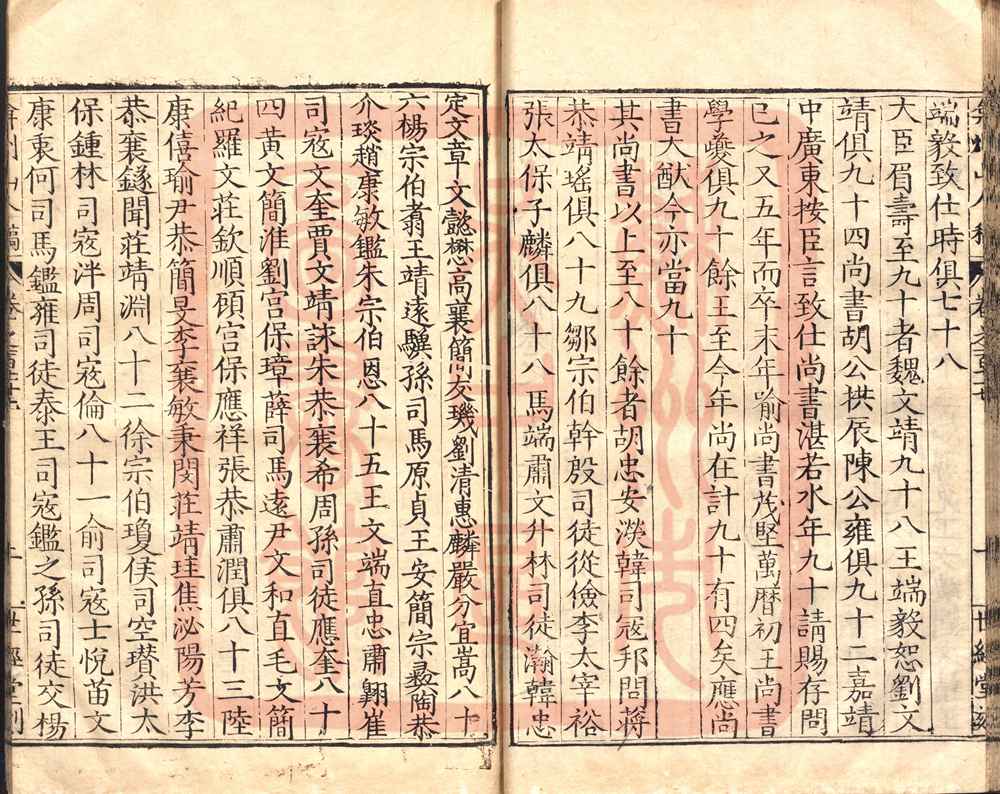 端毅致仕時俱七十八
大臣眉壽至九十者魏文靖九十八王端毅恕劉文
靖俱九十四尚書胡公拱辰陳公雍俱九十二嘉靖
中廣東按臣言致仕尚書湛若水年九十請賜存問
已之又五年而卒末年喻尚書茂堅萬曆初王尚書
學夔俱九十餘王至今年尚在計九十有四矣應尚
書大猷今亦當九十
其尚書以上至八十餘者胡忠安濙韓司冦邦問蔣
恭靖瑤俱八十九鄒宗伯幹殷司徒從儉李太宰裕
張太保子麟俱八十八馬端肅文升林司徒瀚韓忠
定文章文懿懋高襄簡友璣劉清惠麟嚴分宜嵩八十
六楊宗伯翥王靖遠驥孫司馬原貞王安簡宗彞陶恭
介琰趙康敏鑑朱宗伯恩八十五王文端直忠肅翺崔
司寇文奎賈文靖詠朱恭襄希周孫司徒應奎八十
四黃文簡淮劉宫保璋薛司馬遠尹文和直毛文簡
紀羅文莊欽順頋宫保應祥張恭肅潤俱八十三陸
康僖瑜尹恭簡旻李襄敏秉閔莊靖珪焦泌陽芳李
恭襄鐩聞莊靖淵八十二徐宗伯瓊侯司空瓚洪太
保鍾林司寇泮周司寇倫八十一俞司寇士悅苗文
康衷何司馬鑑雍司徒泰王司寇鑑之孫司徒交楊
世經堂刻